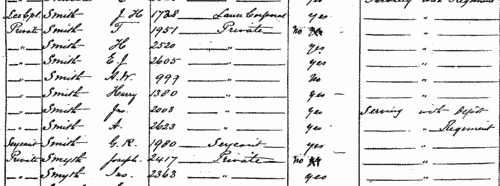 Smith J H 1728 Lance Corporal yes "
Private Smith T 1951 Private no "
" Smith H 2520 " yes "
" Smith E. J 2605 " yes "
" Smith H. W. 999 " no "
" Smith Harry 1380 " yes "
" Smith Jno. 2003 " yes Serving with Depot
" Smith A. 2623 " yes " Regiment
Sergeant Smith G. R. 1980 Sergeant yes "
Private Smyth Joseph 2417 Private no "
" Smyth Jno. 2363 " yes "